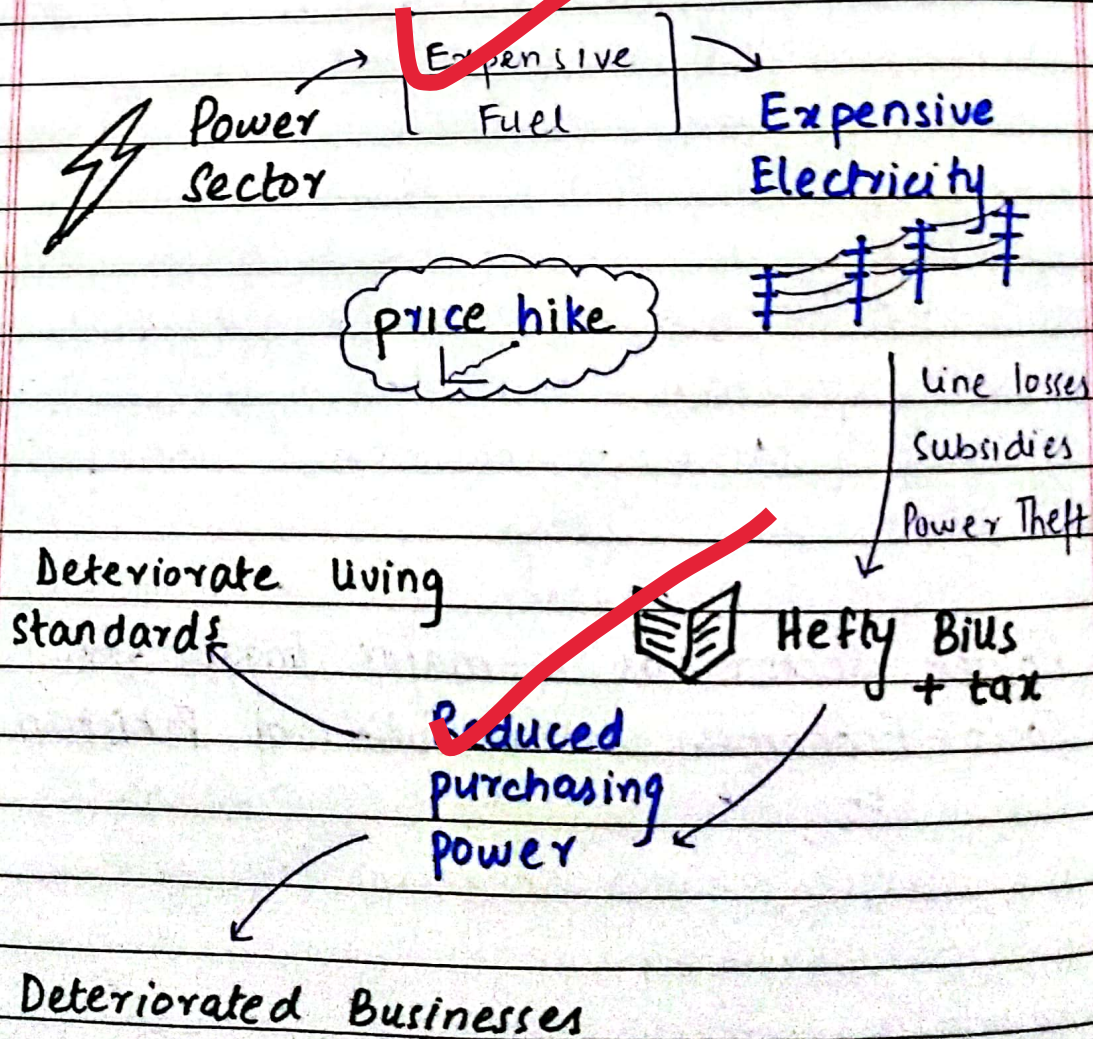 Power
Sector
Expensive
Fuel
Expensive
Electricity
price hike
Line losses
Subsidies
Power Theft
Hefty Bills
+ tax
Reduced
purchasing
power
Deteriorate living
standards
Deteriorated Businesses